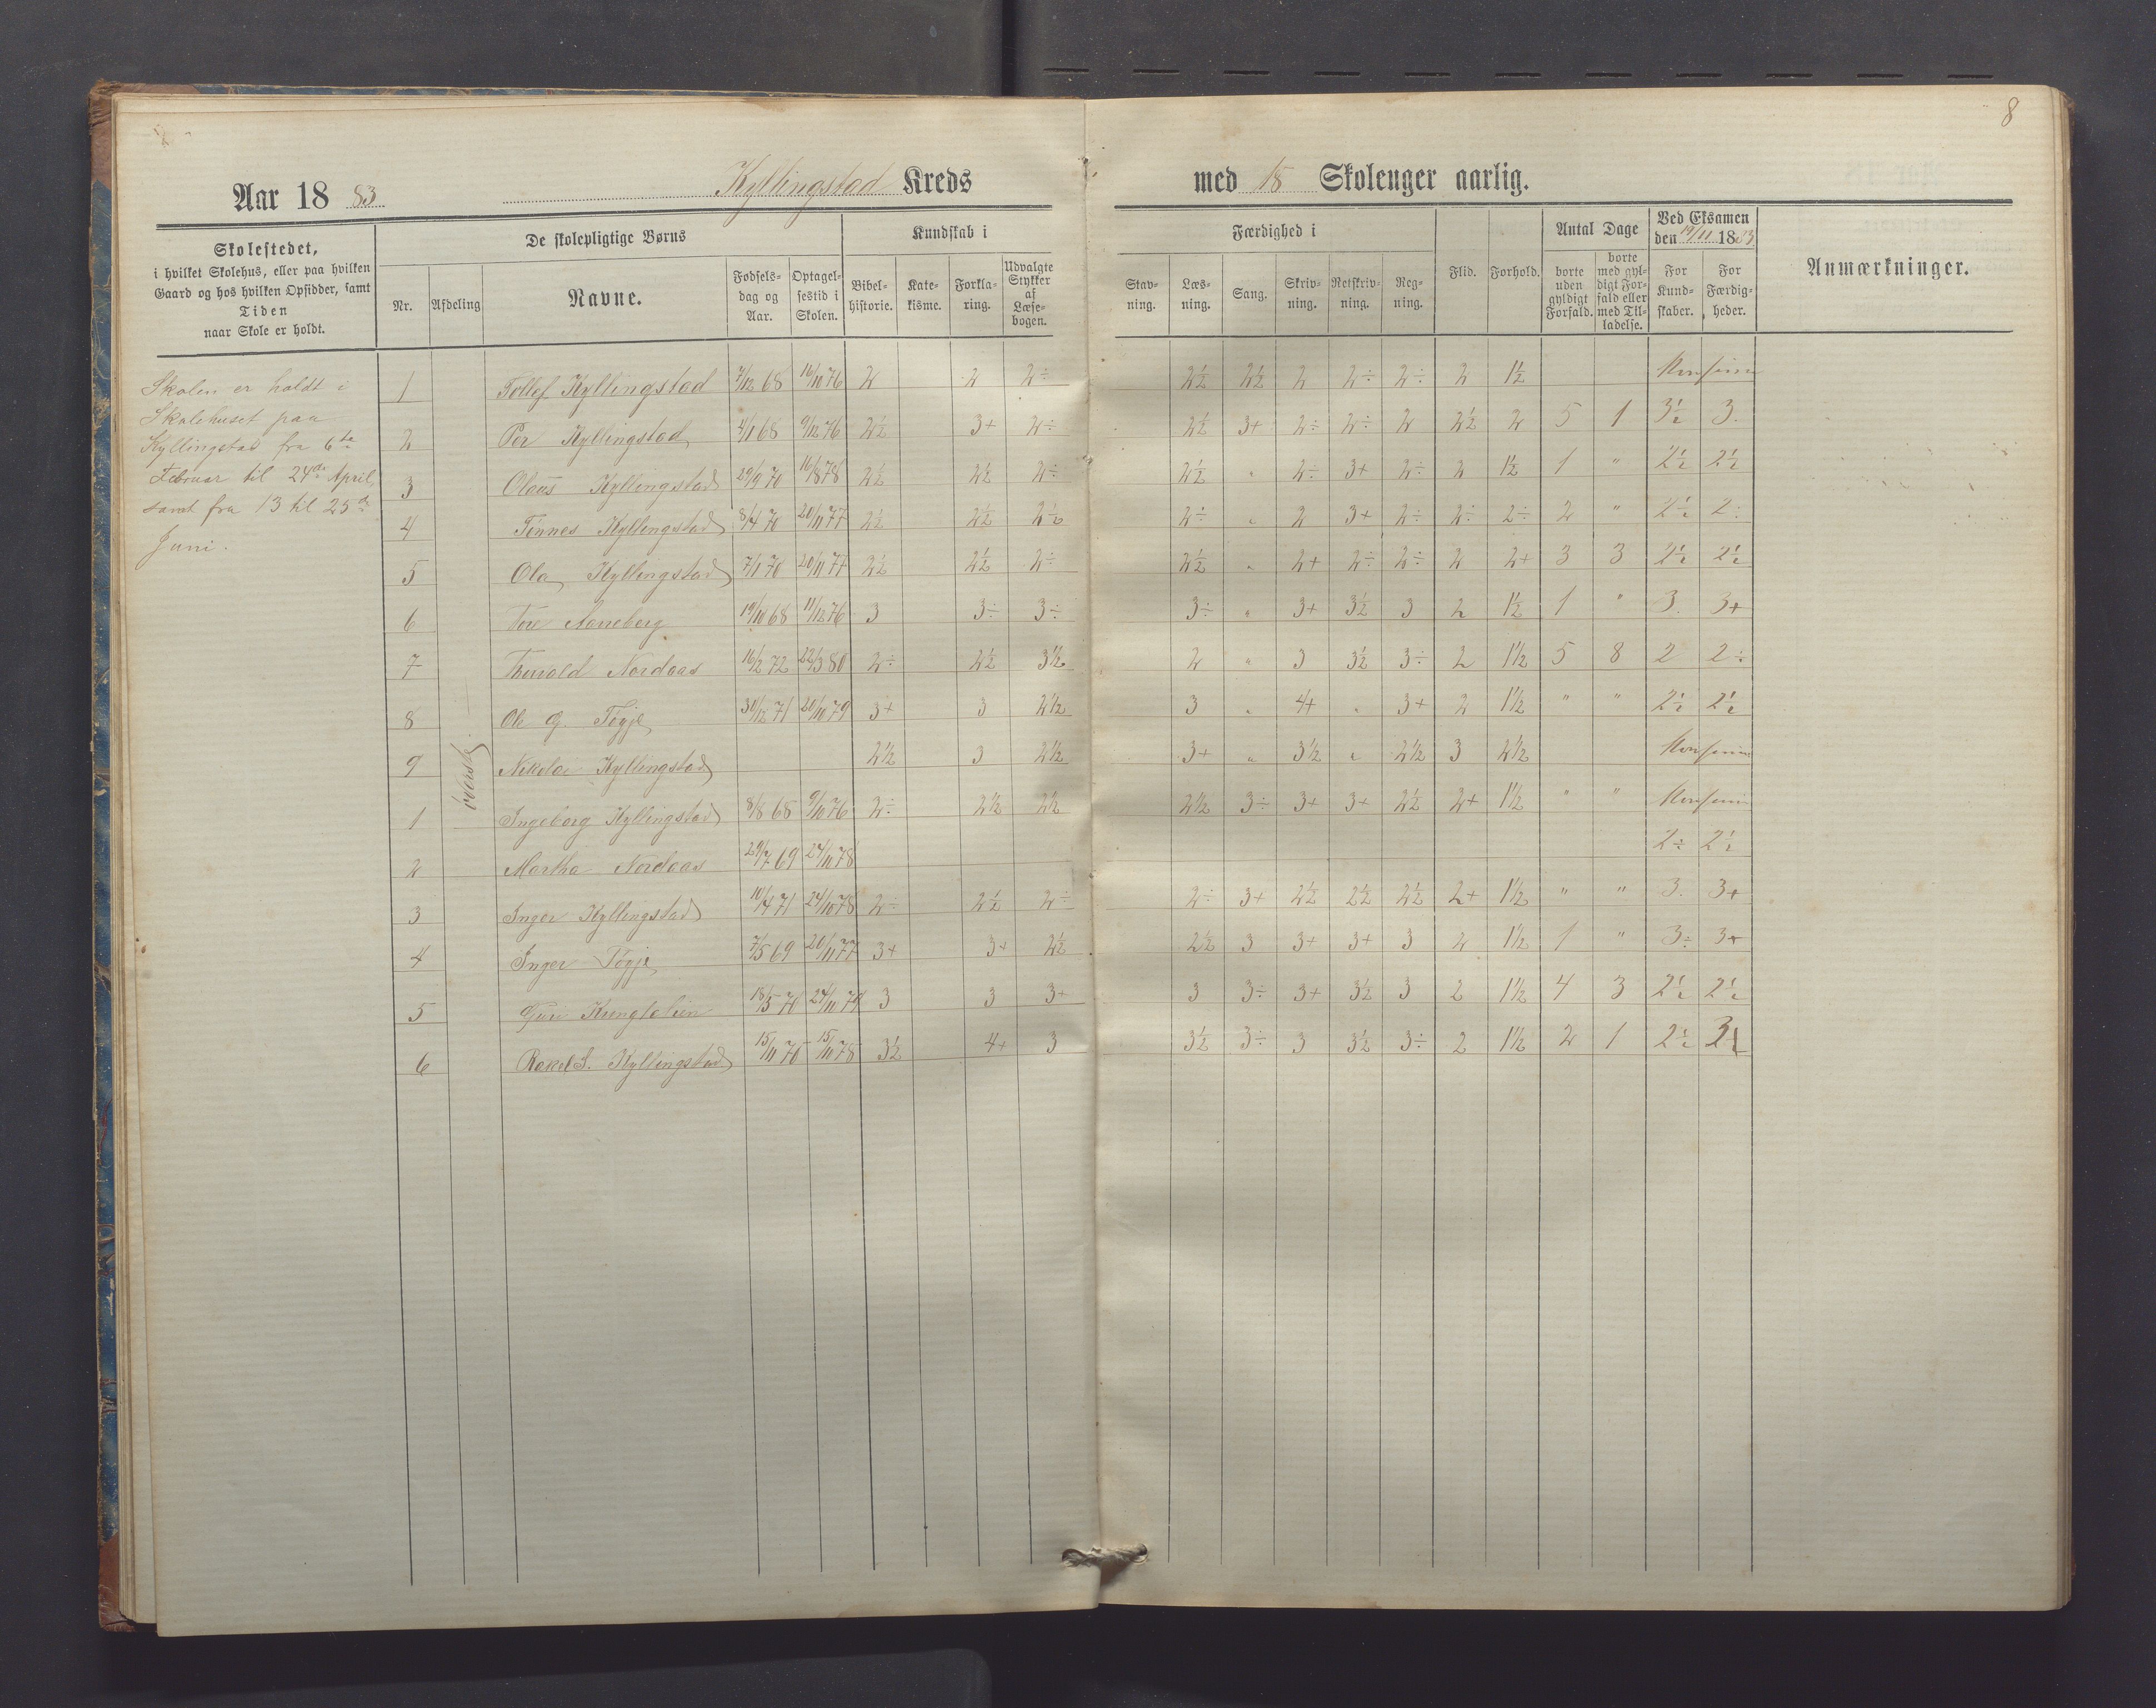 8
Aar 1883 Kyllingstad Kreds med 18 Skoleuger aarlig.
Skolestedet, i hvilket Skolehus, eller paa hvilken Gaard og hos hvilken Opsidder, samt Tiden naar Skole er holdt.
De skolepligtige Børns
Nr. Afdeling Navne. Fødselsdag og Aar. Optagelsestid i Skolen.
Kundskab i
Bibelhistorie. Katekisme. Forklaring. Udvalgte Stykker af Læsebogen.
Færdighed i
Stavning. Læsning. Sang. Skrivning. Retskrivning. Regning.
Flid. Forhold.
Antal Dage
borte uden gyldigt Forfald. borte med gyldigt Forfald eller med Tilladelse.
Ved Eksamen den 19/11 1883
For Kundskaber. For Færdigheder.
Anmærkninger.
Skolen er holdt i
Skolehuset paa
Kyllingstad fra 6te
Februar til 24de April,
samt fra 13 til 25de
Juni.
øverste
1 Tollef Kyllingstad 7/12 68 16/10 76 2 2 2÷ 2½ 2½ 2 2÷ 2÷ 2 1½
2 Per Kyllingstad 4/1 68 9/12 76 2½ 3+ 2÷ 2½ 3+ 2÷ 2÷ 2 2½ 2 5 1 3½ 3
3 Olaus Kyllingstad 29/9 70 16/8 78 2½ 2½ 2÷ 2½ " 2÷ 3+ 2÷ 2 1½ 1 " 2½ 2½
4 Tønnes Kyllingstad 8/4 70 20/11 77 2½ 2½ 2½ 2÷ " 2 3+ 2÷ 2÷ 2÷ 2 " 2½ 2÷
5 Ola Kyllingstad 7/1 70 20/11 77 2½ 2½ 2÷ 2½ " 2+ 2÷ 2÷ 2 2+ 3 3 2½ 2½
6 Tore 19/10 68 11/12 76 3 3÷ 3÷ 3÷ " 3+ 3½ 3 2 1½ 1 " 3 3+
7 Thorvald Nordaas 16/2 72 22/3 80 2÷ 2½ 3½ 2 " 3 3½ 3÷ 2 1½ 5 8 2 2÷
8 Ole G. Tøgje 30/12 71 20/10 79 3+ 3 2½ 3 " 4+ " 3+ 2 1½ " " 2½ 2½
9 Nikolai Kyllingstad 2½ 3 2½ 3+ " 3½ " 2½ 3 2½
1 Ingeborg Kyllingstad 8/8 68 9/10 76 2÷ 2½ 2½ 2½ 3÷ 3+ 3+ 2½ 2+ 1½ " "
2 Martha Nordaas 29/7 69 24/11 78 2÷ 2½
3 Inger Kyllingstad 10/4 71 24/10 78 2÷ 2½ 2÷ 2÷ 3+ 2½ 2½ 2½ 2+ 1½ " " 3 3+
4 Inger Tøgje 7/5 69 20/11 77 3+ 3+ 2½ 2½ 3 3+ 3+ 3 2 1½ 1 " 3÷ 3+
5 Guri 18/5 70 24/11 79 3 3 3+ 3 3÷ 3+ 3½ 3 2 1½ 4 3 2½ 2½
6 Rakel S. Kyllingstad 15/11 70 15/11 78 3½ 4+ 3 3½ 3÷ 3 3½ 3÷ 2 1½ 2 1 2½